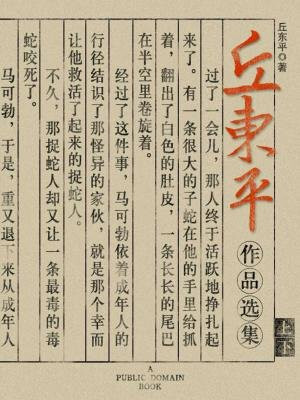 丘东平◎著
丘東平
作品选集
过了一会儿，那人终于活跃地挣扎起
来了。有一条很大的子蛇在他的手里给抓
着，翻出了白色的肚皮，一条长长的尾巴
在半空里卷旋着。
经过了这件事，马可勃依着成年人的
行径结识了那怪异的家伙，就是那个幸而
让他救活了起来的捉蛇人。
不久，那捉蛇人却又让一条最毒的毒
蛇咬死了。
马可勃，于是，重又退下来从成年人
A
PUBLIC DOMAIN
BOOK